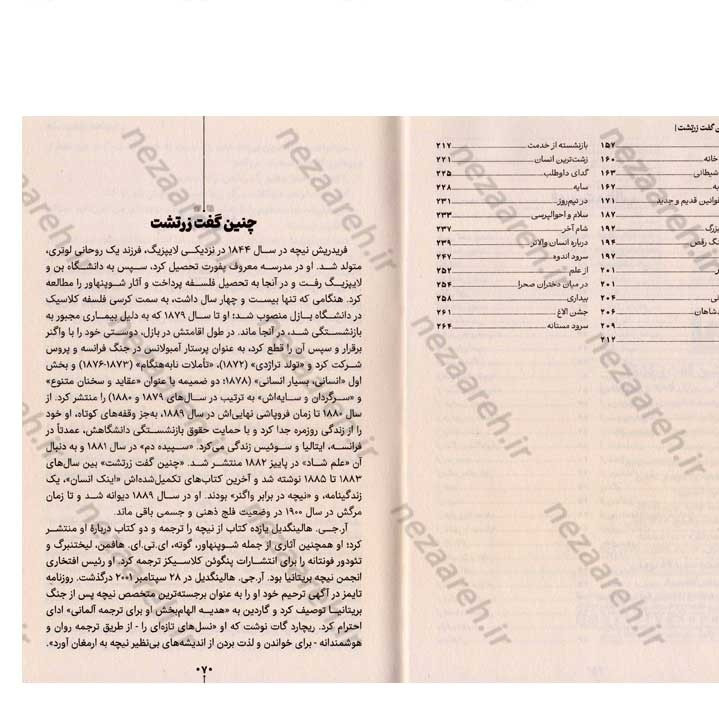 ین گفت زرتشت |
۱۵۷
خانه ۱۶۰
شیطانی ۱۶۳
۱۶۷
قوانین قدیم و جدید ۱۷۱
۱۸۷
بزرگ ۱۹۲
نگ رقص ۱۹۴
۱۹۷
۲۰۱
۲۰۱
۲۰۴
دشاهان ۲۰۶
۲۰۹
۲۱۲
بازنشسته از خدمت ۲۱۷
زشت‌ترین انسان ۲۲۱
گدای داوطلب ۲۲۵
سایه ۲۲۸
در نیم‌روز ۲۳۱
سلام و احوالپرسی ۲۳۳
شام آخر ۲۳۷
درباره انسان والاتر ۲۳۹
سرود اندوه ۲۴۷
از علم ۲۵۲
در میان دختران صحرا ۲۵۴
بیداری ۲۵۸
جشن الاغ ۲۶۱
سرود مستانه ۲۶۴
چنین گفت زرتشت
فریدریش نیچه در سـال ۱۸۴۴ در نزدیکـی لایپزیگ، فرزند یک روحانی لوتری،
متولد شـد. او در مدرسـه معروف پفورت تحصیل کرد، سـپس به دانشگاه بن و
لایپزیـگ رفـت و در آنجا به تحصیل فلسـفه پرداخت و آثار شـوپنهاور را مطالعه
کرد. هنگامی که تنها بیسـت و چهار سال داشت، به سمت کرسی فلسفه کلاسیک
در دانشـگاه بـازل منصوب شـد؛ او تا سـال ۱۸۷۹ که به دلیل بیمـاری مجبور به
بازنشسـتگی شـد، در آنجا ماند. در طول اقامتش در بازل، دوستی خود را با واگنر
برقرار و سـپس آن را قطع کرد، به عنوان پرستار آمبولانس در جنگ فرانسه و پروس
شـرکت کرد و «تولد تراژدی» (۱۸۷۲)، «تأملات نابه‌هنگام» (۱۸۷۳-۱۸۷۶) و بخش
اول «انسانی، بسیار انسانی» (۱۸۷۸؛ دو ضمیمه با عنوان «عقاید و سخنان متنوع»
و «سـرگردان و سـایه‌اش» به ترتیب در سـال‌های ۱۸۷۹ و ۱۸۸۰) را منتشر کرد. از
سال ۱۸۸۰ تا زمان فروپاشی نهایی‌اش در سال ۱۸۸۹، به‌جز وقفه‌های کوتاه، او خود
را از زندگی روزمره جدا کرد و با حمایت حقوق بازنشسـتگی دانشگاهش، عمدتاً در
فرانسـه، ایتالیا و سـوئیس زندگی می‌کرد. «سـپیده دم» در سال ۱۸۸۱ و به دنبال
آن «علم شـاد» در پاییز ۱۸۸۲ منتشـر شـد. «چنین گفت زرتشت» بین سال‌های
۱۸۸۳ تا ۱۸۸۵ نوشته شد و آخرین کتاب‌های تکمیل‌شده‌اش «اینک انسان»، یک
زندگینامه، و «نیچه در برابر واگنر» بودند. او در سـال ۱۸۸۹ دیوانه شـد و تا زمان
مرگش در سال ۱۹۰۰ در وضعیت فلج ذهنی و جسمی باقی ماند.
آر.جـی. هالینگدیل یازده کتاب از نیچه را ترجمه و دو کتاب دربارهٔ او منتشـر
کرد؛ او همچنین آثاری از جمله شـوپنهاور، گوته، ای.تی.ای. هافمن، لیختنبرگ و
تئودور فونتانه را برای انتشارات پنگوئن کلاسیکز ترجمه کرد. او رئیس افتخاری
انجمن نیچه بریتانیا بود. آر.جی. هالینگدیل در ۲۸ سپتامبر ۲۰۰۱ درگذشت. روزنامه
تایمز در آگهی ترحیم خود او را به عنوان برجسته‌ترین متخصص نیچه پس از جنگ
بریتانیـا توصیف کرد و گاردین به «هدیـه الهام‌بخش او برای ترجمه آلمانی» ادای
احترام کرد. ریچارد گات نوشت که او «نسل‌های تازه‌ای را - از طریق ترجمه روان و
هوشمندانه - برای خواندن و لذت بردن از اندیشه‌های بی‌نظیر نیچه به ارمغان آورد».
۰۷۰
nezaareh.ir
nezaareh.ir
nezaareh.ir
nezaareh.ir
nezaareh.ir
nezaareh.ir
nezaareh.ir
nezaareh.ir
nezaareh.ir